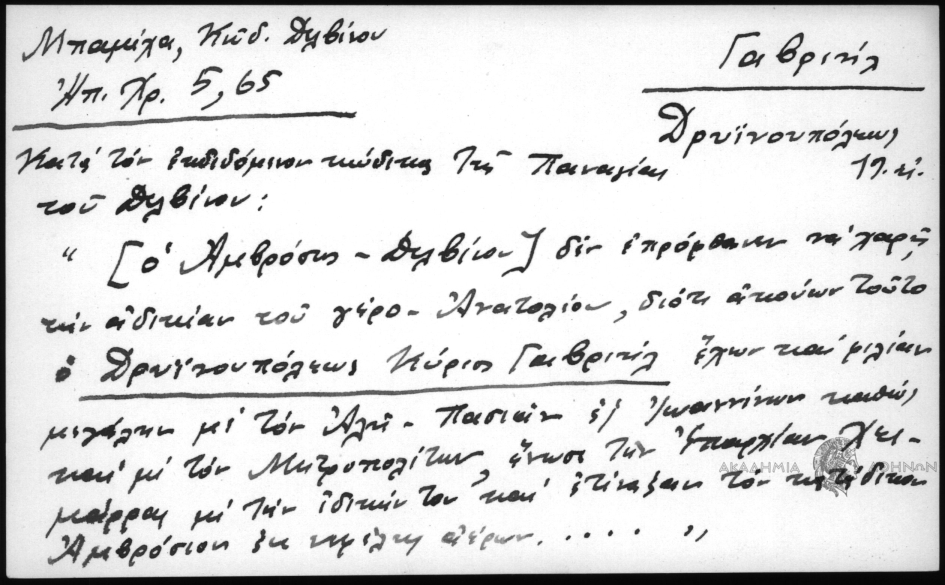 Μπαμίχα, Κώδ. Δελβίνου
Ἠπ. Χρ. 5, 65
Γαβριήλ
Δρυϊνουπόλεως
Κατά τόν ἐκδιδόμενον κώδικα τῆς Παναγίας
τοῦ Δελβίνου:
" [ὁ Ἀμβρόσιος - Δελβίνου] δέν ἐπρόφθασεν νά χαρῇ
τήν ἀδικίαν τοῦ γέρο-Ἀνατολίου, διότι ἀκούων τοῦτο
ὁ Δρυϊνουπόλεως Κύριος Γαβριήλ ἔχων καί φιλίαν
μεγάλην μέ τόν Ἀλῆ-Πασιᾶν ἐξ Ἰωαννίνων καθώς
καί μέ τόν Μητροπολίτην, ἥνωσε τήν Ἐπαρχίαν Χει-
μάρρας μέ τήν ἰδικήν του καί ἐτίναξαν τόν
Ἀμβρόσιον ἐκ ἀέρων. . . . . "
ΑΚΑΔΗΜΙΑ ΑΘΗΝΩΝ